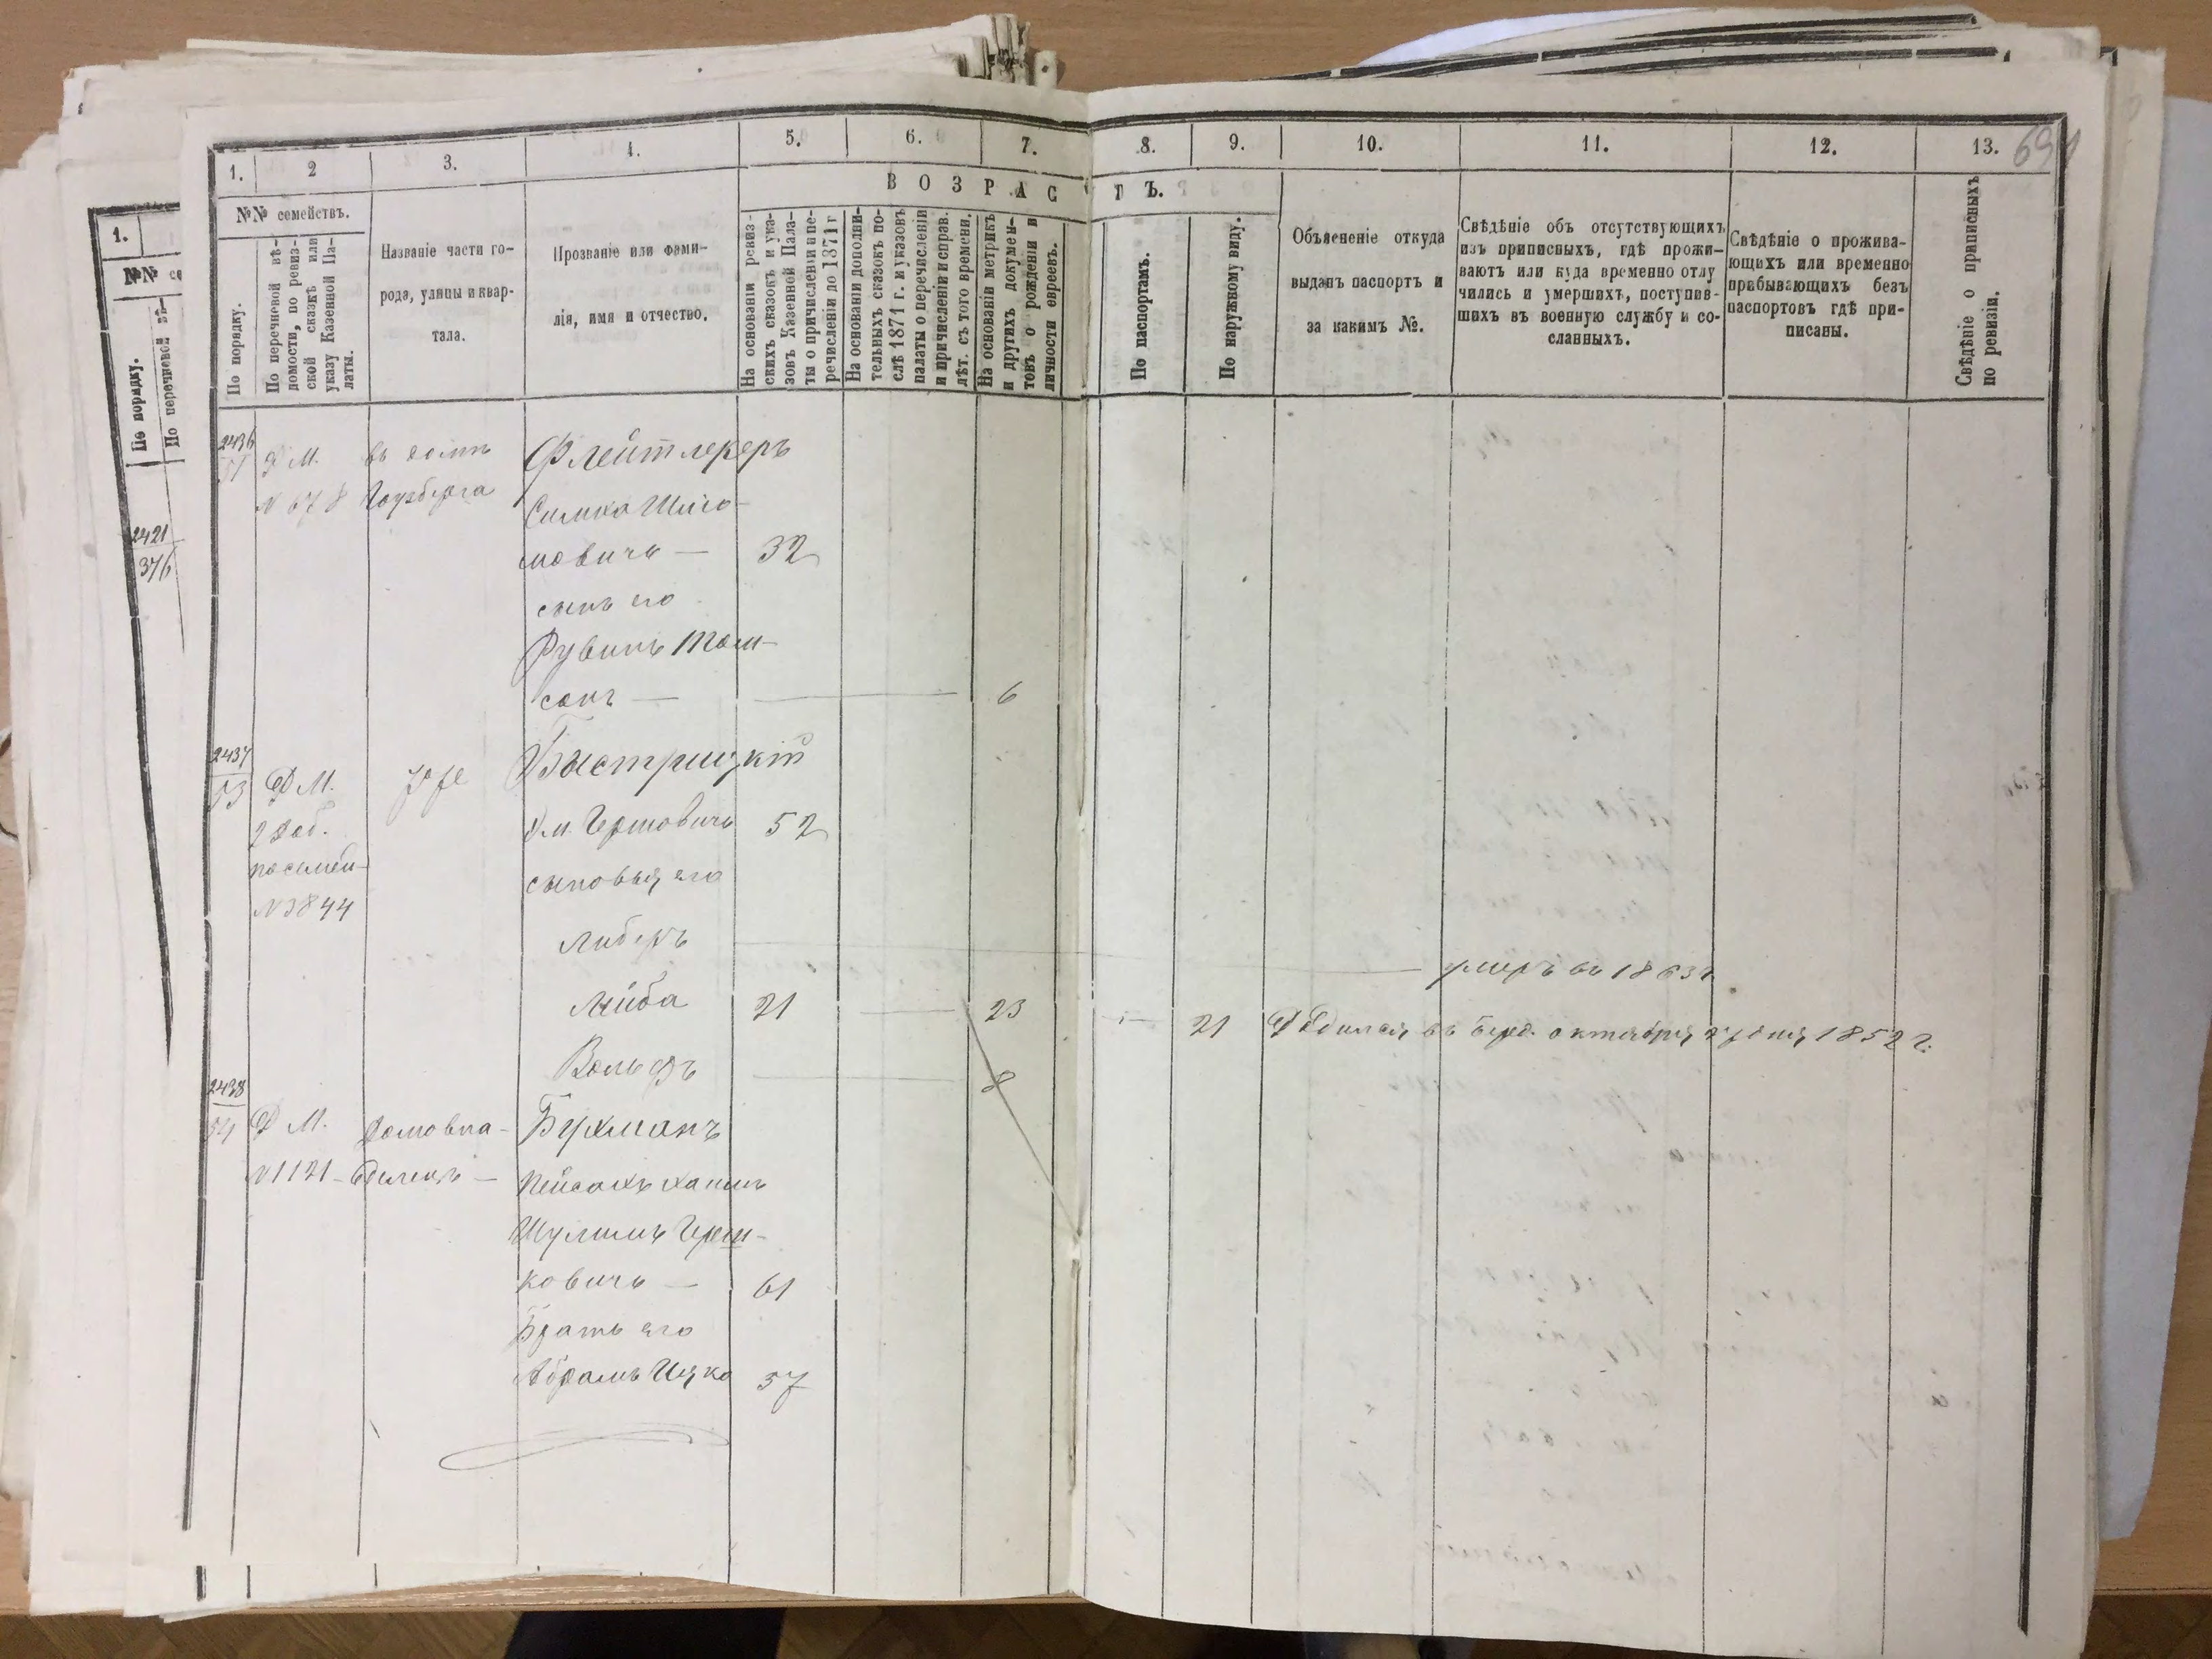 1.
№№ се
По порядку.
По перечневой вѣ-
2421
376
1.
2
3.
4.
5.
6.
7.
8.
9.
10.
11.
12.
13.
691
№№ семействъ.
ВОЗРАСТЪ.
По порядку.
По перечневой вѣ-
домости, по ревиз-
ской сказкѣ или
указу Казенной Па-
латы.
Названіе части го-
рода, улицы и квар-
тала.
Прозваніе или фами-
лія, имя и отчество.
На основаніи ревиз-
скихъ сказокъ и ука-
зовъ Казенной Пала-
ты о причисленіи и пе-
речисленіи до 1871 г
На основаніи дополни-
тельныхъ сказокъ по-
слѣ 1871 г. и указовъ
палаты о перечисленіи
и причисленіи и справ.
лѣт. съ того времени.
На основаніи метрикъ
и другихъ докумен-
товъ о рожденіи и
личности евреевъ.
По паспортамъ.
По наружному виду.
Объясненіе откуда
выданъ паспортъ и
за какимъ №.
Свѣдѣніе объ отсутствующихъ
изъ приписныхъ, гдѣ прожи-
ваютъ или куда временно отлу
чились и умершихъ, поступив-
шихъ въ военную службу и со-
сланныхъ.
Свѣдѣніе о прожива-
ющихъ или временно
прибывающихъ безъ
паспортовъ гдѣ при-
писаны.
Свѣдѣніе о приписныхъ
по ревизіи.
2436
51
М. въ домѣ Флейтлекеръ
N 678
Симка Шлио-
мовичъ — 32
сынъ его
Рувинъ
6
2437
53
М. Быстрицкій
2 доб. Гершовичъ 52
посемей- сыновья его
N 3844
Либеръ — умеръ въ 1863 г.
Лейба 21 — 23 — 21 октября 1852 г.
Вольфъ — 8
2438
54
М. Домовла- Бухманъ
N 1121 - дѣлецъ — Пейсахъ Хаимъ
Шулимъ Герш-
ковичъ — 61
Братъ его
Абрамъ Ицко 57